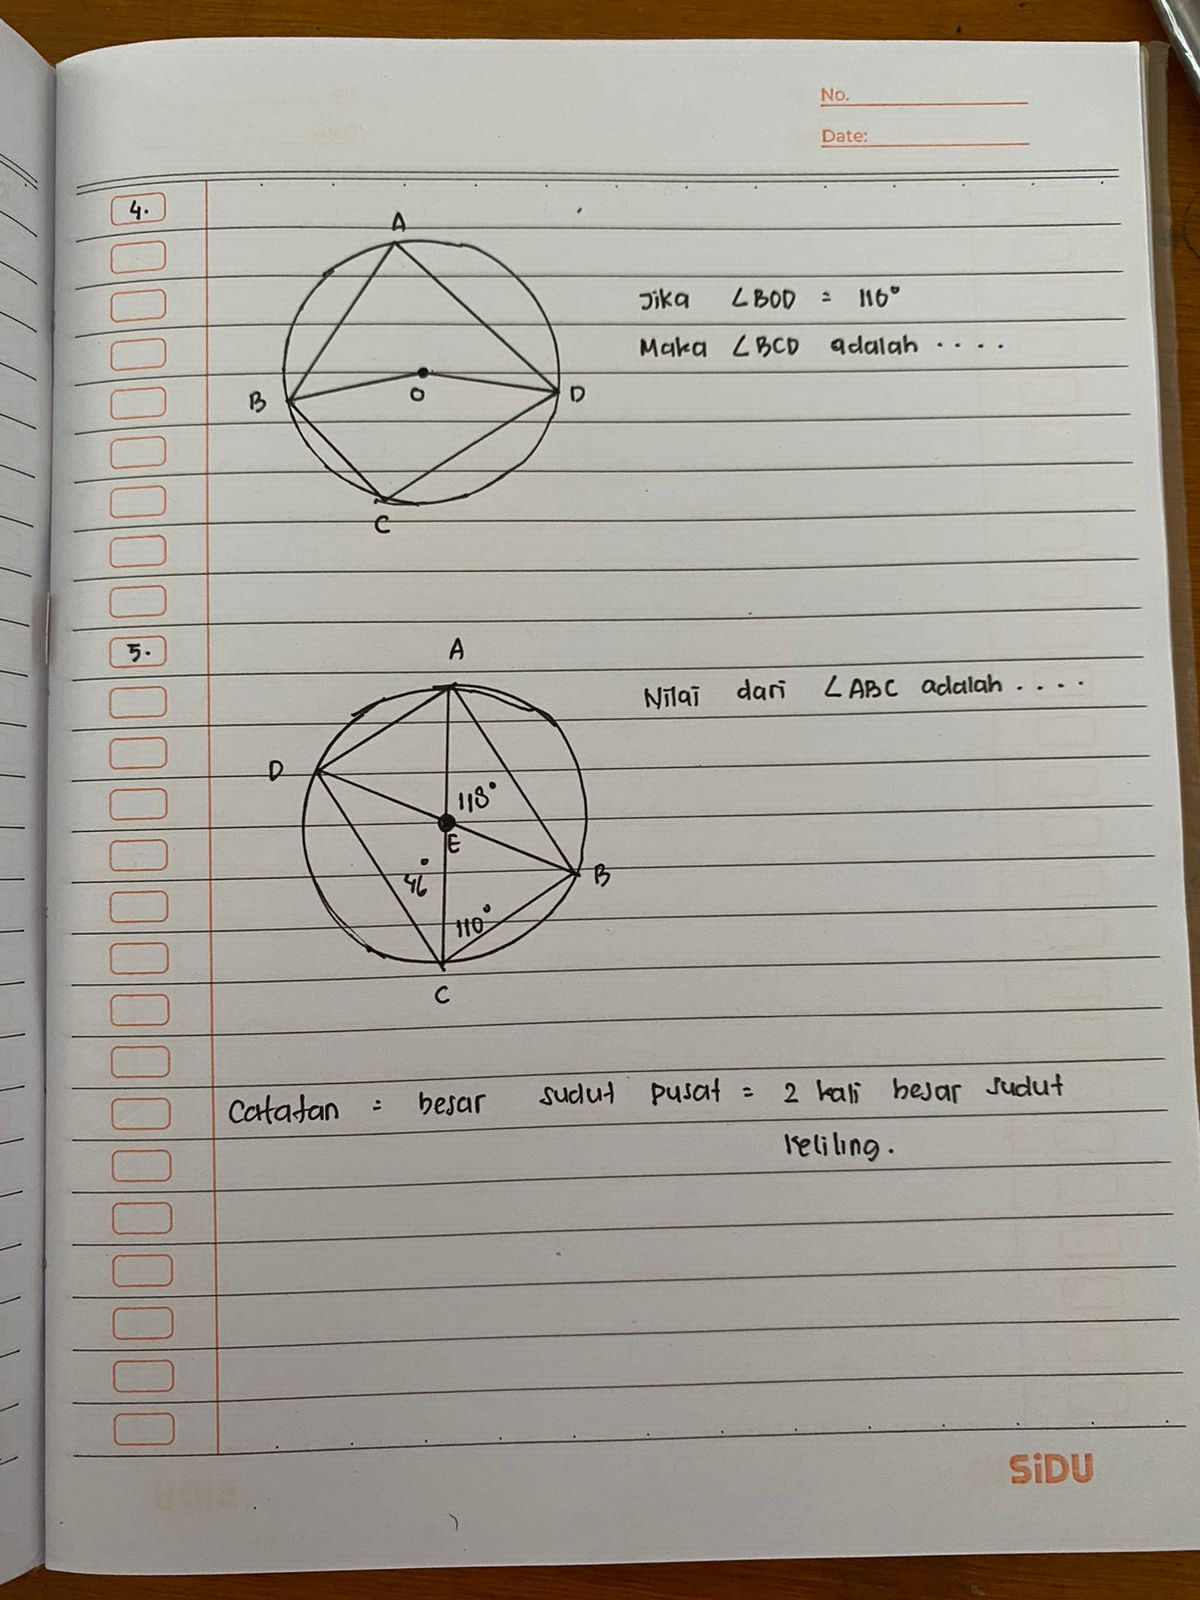 No.
Date:
4.
A
Jika ∠BOD = 116°
Maka ∠BCD adalah ....
B
O
D
C
5.
A
Nilai dari ∠ABC adalah ....
D
118°
E
B
46°
110°
C
Catatan = besar sudut pusat = 2 kali besar sudut
keliling.
SiDU